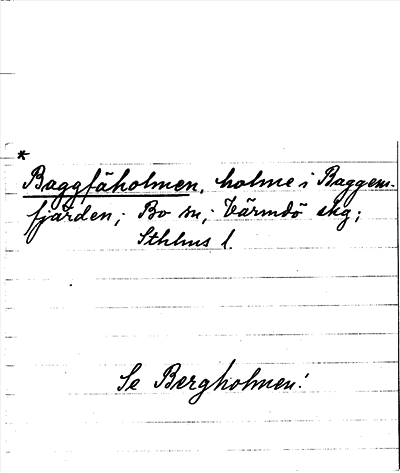 *
Baggfäholmen, holme i Baggens-
fjärden; Bo sn; Värmdö skg;
Sthlms l.
Se Bergholmen!